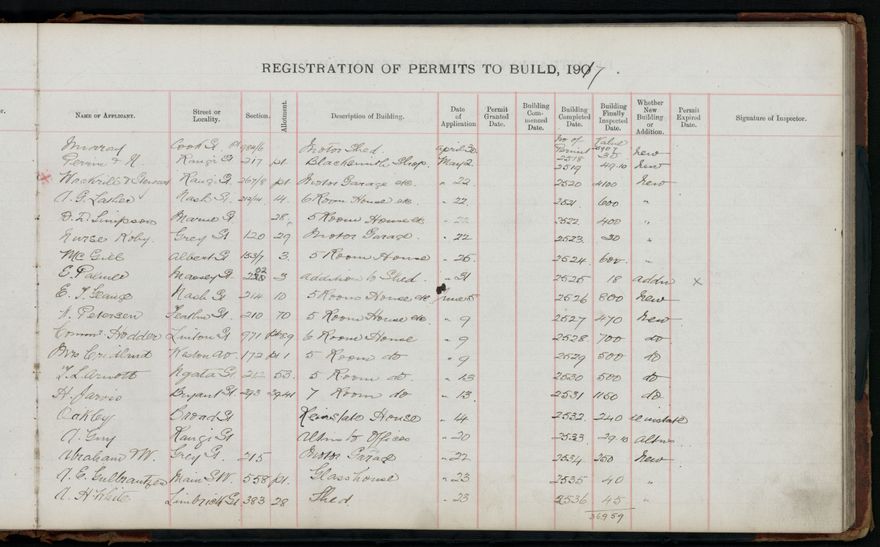 REGISTRATION OF PERMITS TO BUILD, 1907.
r. NAME OF APPLICANT. Street or Locality. Section. Allotment. Description of Building. Date of Application Permit Granted Date. Building Commenced Date. Building Completed Date. Building Finally Inspected Date. Whether New Building or Addition. Permit Expired Date. Signature of Inspector.
No of Permit Value
Murray Cook St Motor Shed April 30 2518 35 new
Rangi St 217 pt Blacksmith Shop May 2 2519 49.10 new
Rangi St 267/8 pt Motor Garage etc " 22 2520 4100 new
Nash St 14 6 Room House etc " 22 2521 600 "
Simpson 28 5 Room House etc " 22 2522 400 "
Nurse Roby Grey St 120 29 Motor Garage " 22 2523 30 "
McGill Albert St 153/7 3 5 Room House " 26 2524 600 "
E. Palmer Massey St 3 addition to Shed " 31 2525 18 addn x
Nash St 214 10 5 Room House etc June 5 2526 800 new
Petersen 210 70 5 Room House etc " 9 2527 470 new
Hodder Linton St 971 89 6 Room House " 9 2528 700 do
172 pt 1 5 Room do " 9 2529 500 do
Ngata St 53 5 Room do " 13 2530 500 do
H. Jarvis Bryant St 293 7 Room do " 13 2531 1150 do
Oakley Broad St Reinstate House " 14 2532 240 reinstate
Guy Rangi St Altns to Offices " 20 2533 29.10 altns
W. Grey St 215 Motor Garage " 22 2534 new
Main St W. 558 pt Glasshouse " 23 2535 40 "
Limbrick St 383 28 Shed " 23 2536 45 "
36959